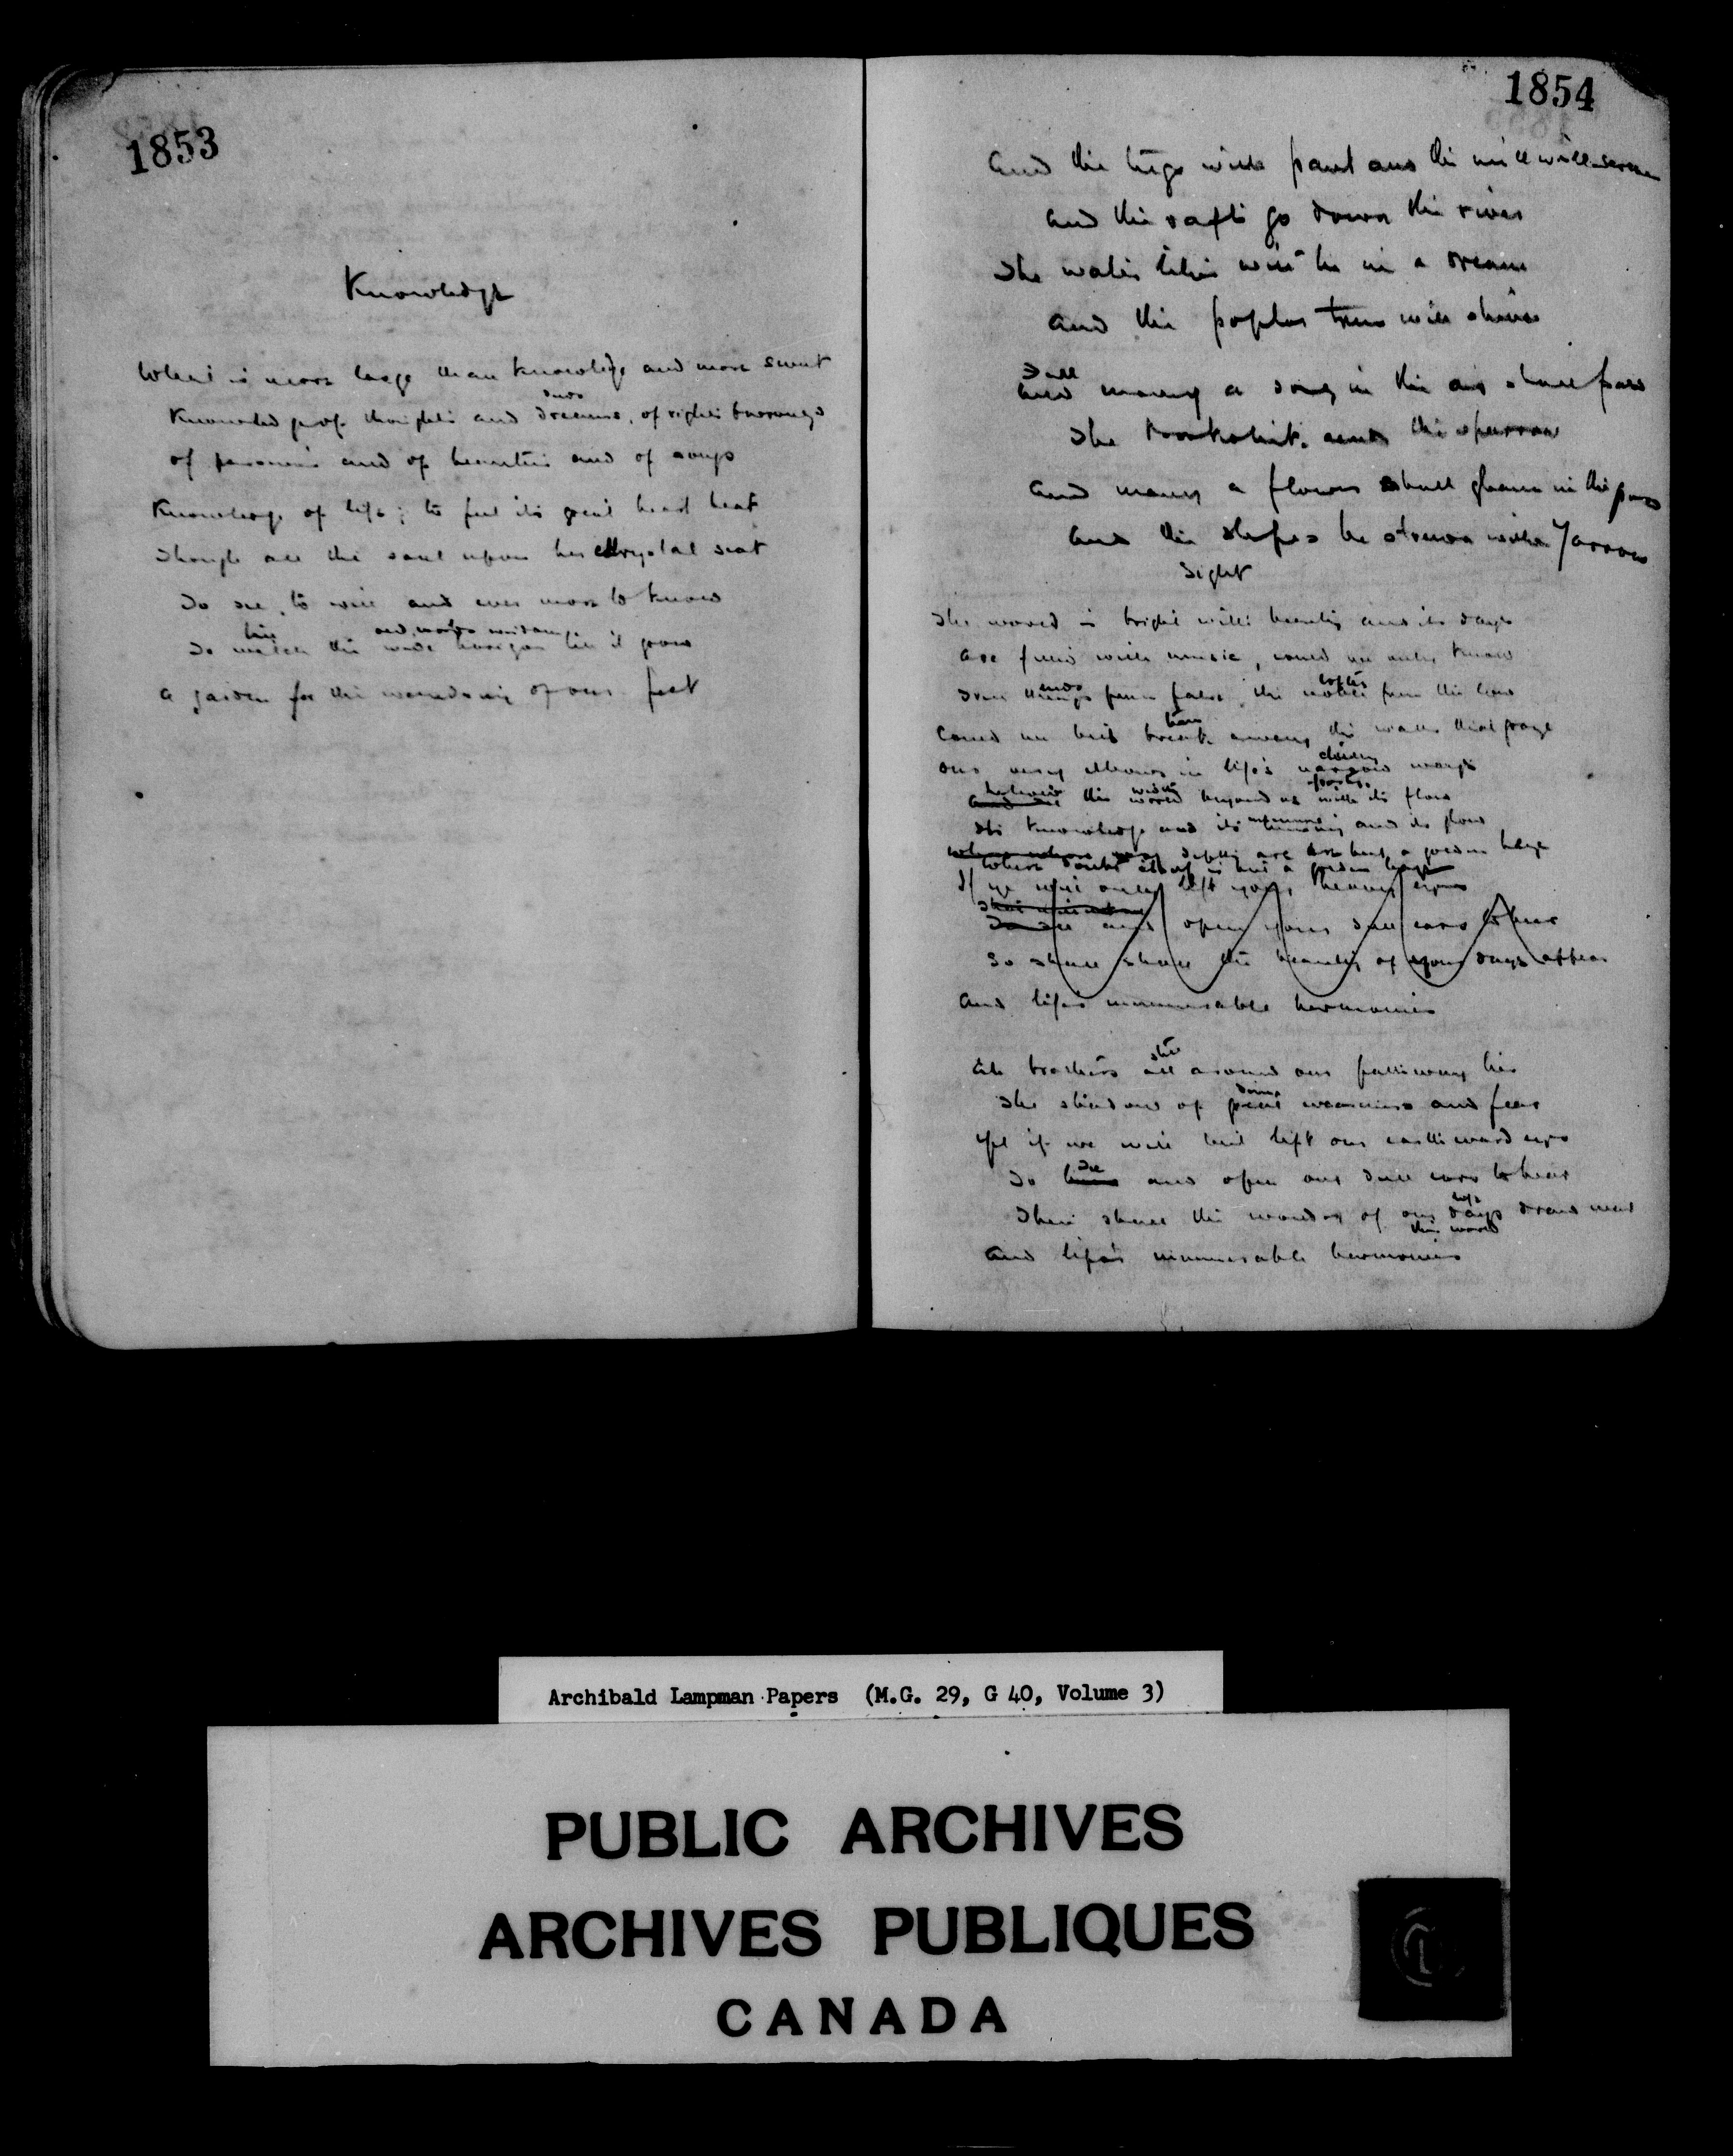 1853
Knowledge
What is more large than knowledge and more sweet
deeds
Knowledge of thoughts and dreams, of rights & wrongs
of passions and of beauties and of songs
Knowledge of life; to feel its great heart beat
Through all the soul upon her chrystal seat
To see, to will and ever more to know
till
To watch the wide horizon till it grow
A garden for the wandering of our feet
1854
And the tugs will pant and the mill will scream
And the rafts go down the river
The water lilies will lie in a dream
And the poplar trees will shiver
And many a song in the air shall pass
The and the sparrow
And many a flower shall gleam in the grass
And the slopes be strewn with yarrow
Sight
The world is bright with beauty and its days
Are filled with music, could we only know
ends loftier
True things from false, the noble from the low
tear
Could we but break away the walls that graze
our very elbows in life's narrow ways
Behold width
And see the world beyond us with its flow
Its knowledge and its and its glow
depths are but a golden haze
Where doubt itself is but a golden haze
If ye will only lift your heavy eyes
To see and open your dull ears to hear
So shall shall the beauty of your days appear
And life's innumerable harmonies
still
Ah brothers all around our pathway lies
The shadow of great weariness and fear
Yet if we will but lift our earthward eyes
see
To and open our dull ears to hear
life
Then shall the wonder of our days draw near
this world
And life's innumerable harmonies
Archibald Lampman Papers (M.G. 29, G 40, Volume 3)
PUBLIC ARCHIVES
ARCHIVES PUBLIQUES
CANADA